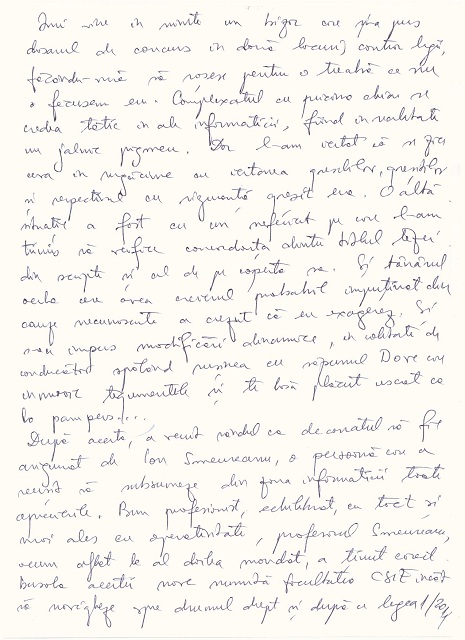 Îmi vine în minte un bizar care și-a pus
dosarul de concurs în două locuri, contra legii,
făcându-mă să roșesc pentru o treabă ce nu
o făcusem eu. Complexatul cu pricina chiar se
credea tătic în ale informaticii, fiind în realitate
un jalnic pigmeu. Dar l-am iertat că și zicea
ceva în rugăciune cu iertarea greșelilor, greșiților
și respectivul cu siguranță greșit era. O altă
situație a fost cu un nefericit pe care l-am
trimis să verifice concordanța dintre titlul tezei
din scripte și al de pe coperta sa. Și tânărul
acela care avea creierul probabil împuținat din
cauze necunoscute a crezut că eu exagerez. Și
s-au impus modificări dinamice, în calitate de
conducător spălând rușinea cu săpunul Dove care
înmoaie tegumentele și te lasă plăcut uscat ca
la pampers....
După aceea, a venit rândul ca decanatul să fie
asigurat de Ion Smeureanu, o persoană care a
reușit să subsumeze din zona informaticii toate
aprecierile. Bun profesionist, echilibrat, cu tact și
mai ales cu operativitate, profesorul Smeureanu,
acum aflat la al doilea mandat, a ținut corect
busola acestei nave numită facultatea CSIE încât
să navigheze spre drumul drept și după ce legea 1/2011